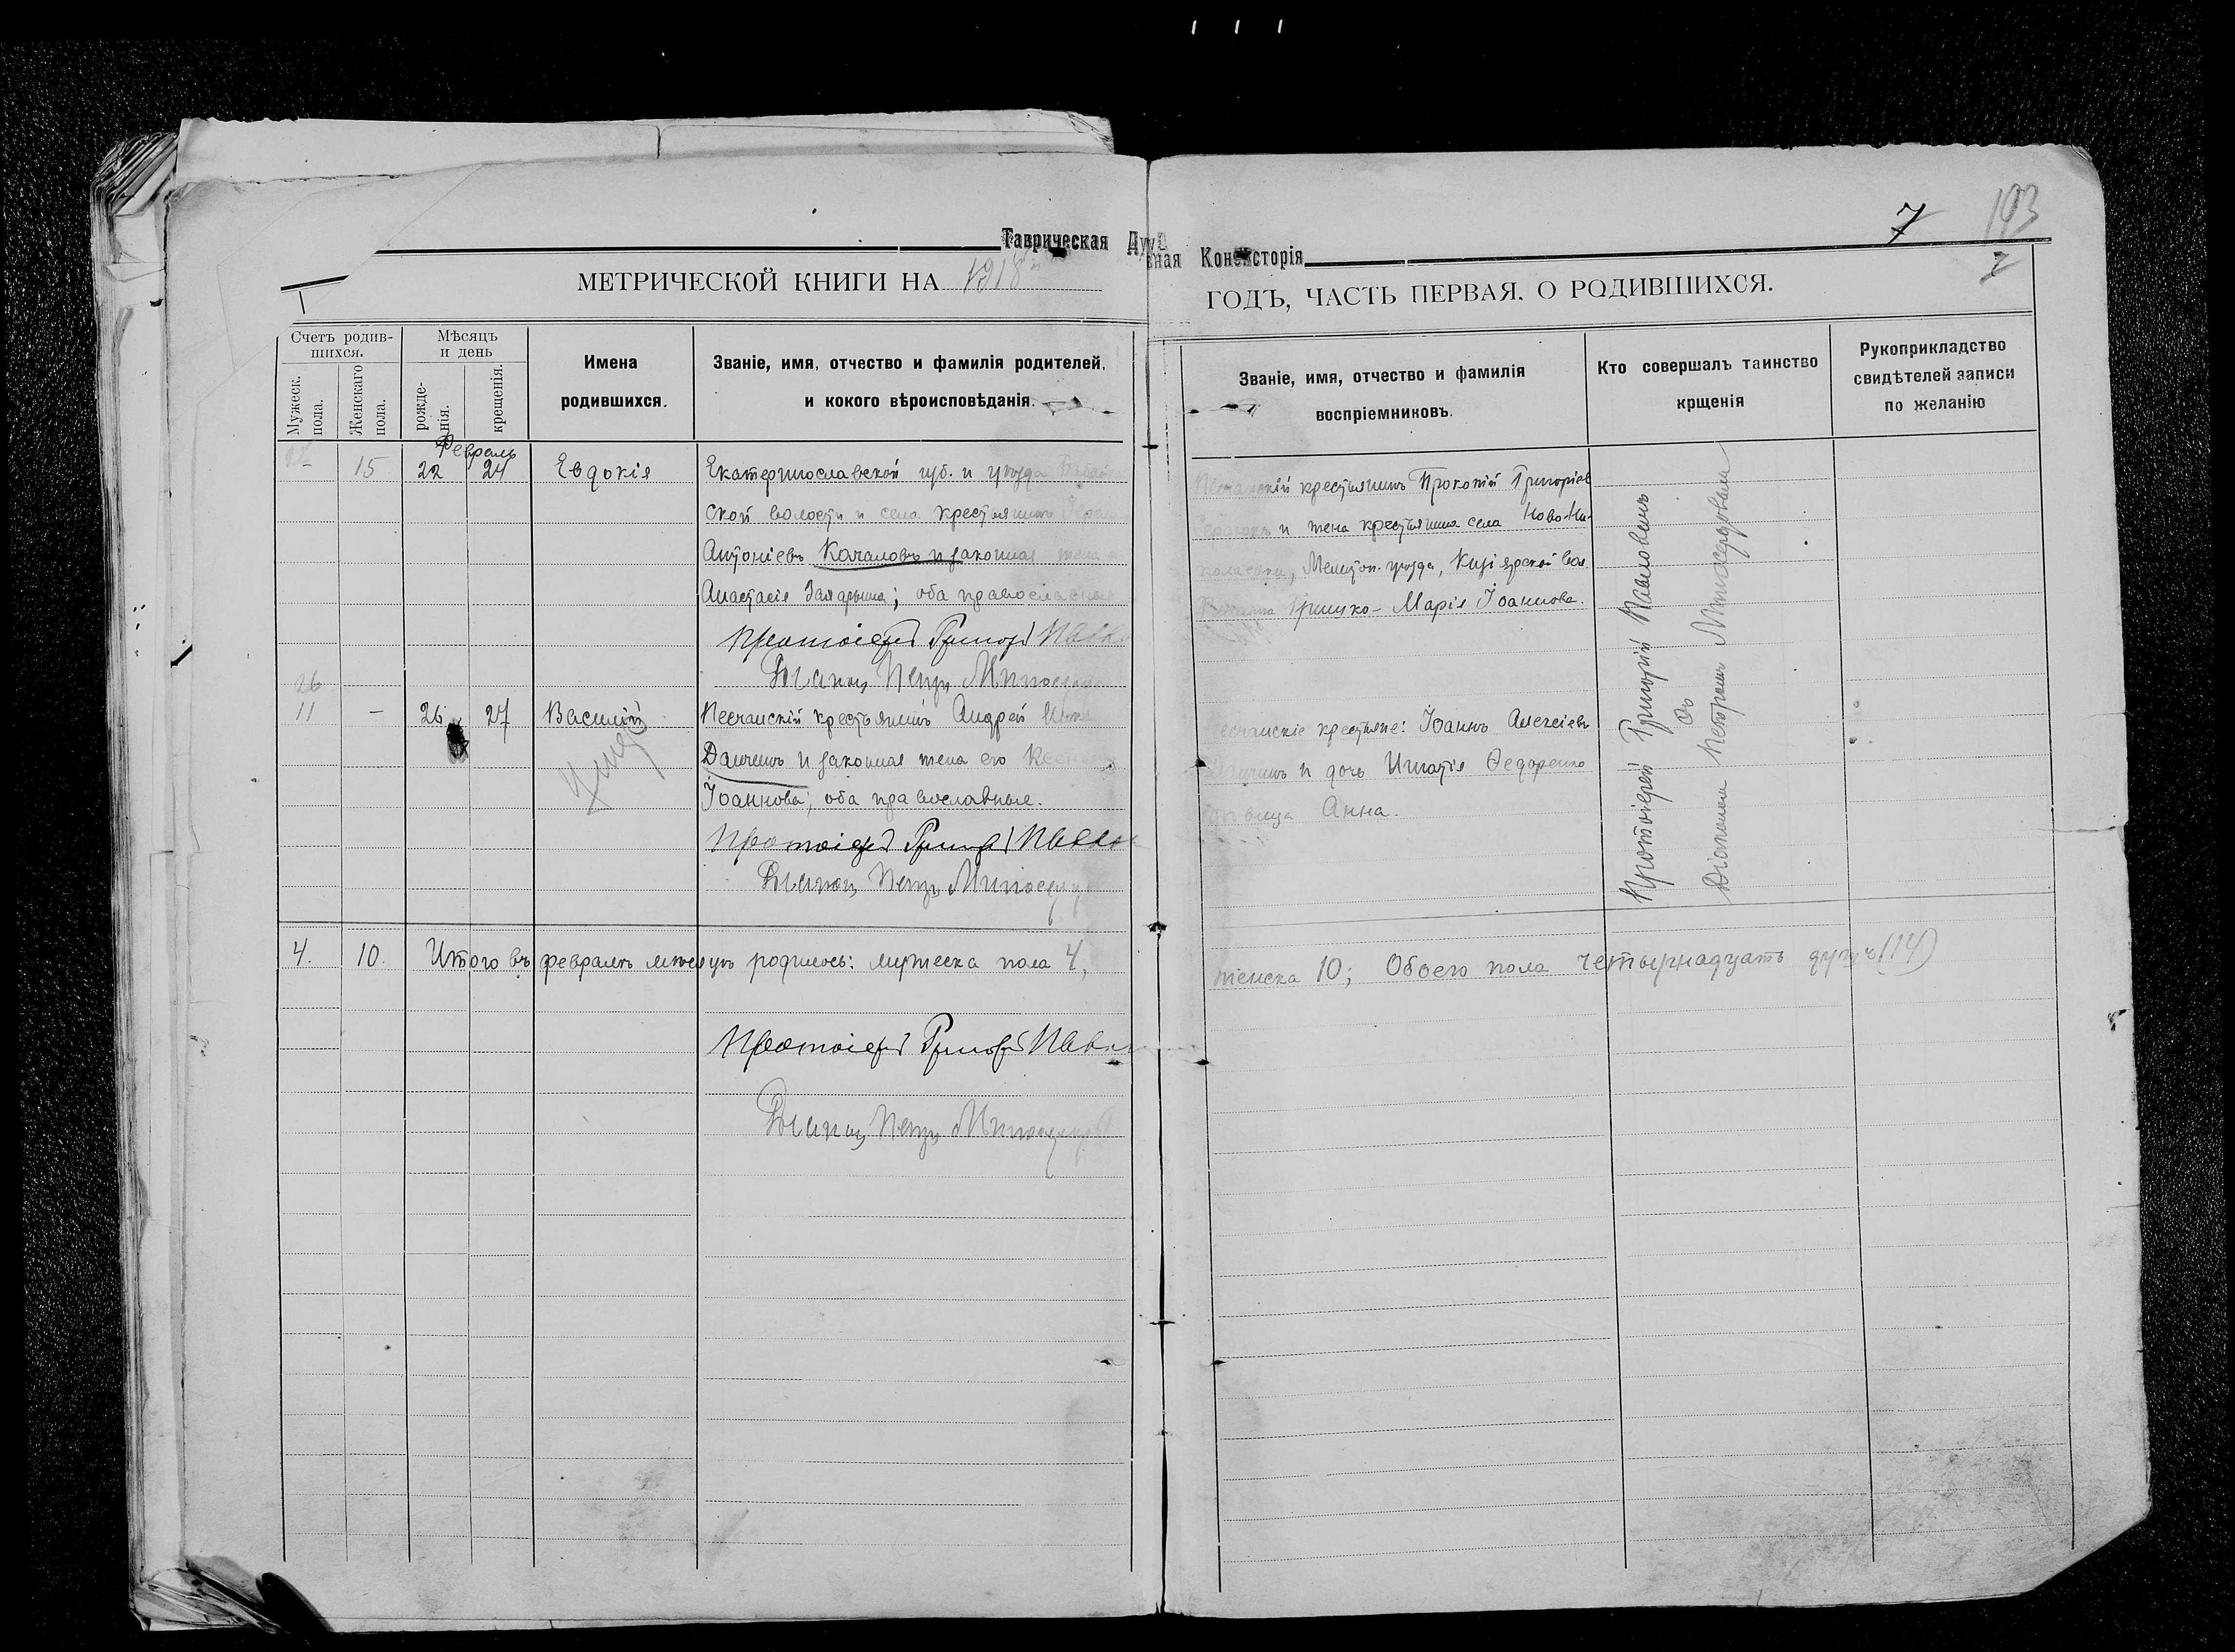 7 193
7
Таврическая Духовная Консисторія
МЕТРИЧЕСКОЙ КНИГИ НА 1918 ГОДЪ, ЧАСТЬ ПЕРВАЯ. О РОДИВШИХСЯ.
Счетъ родив-
шихся.
Мужеск.
пола.
Женскаго
пола.
Мѣсяцъ
и день
рожде-
нія.
крещенія.
Имена
родившихся.
Званіе, имя, отчество и фамилія родителей,
и кокого вѣроисповѣданія.
Званіе, имя, отчество и фамилія
воспріемниковъ.
Кто совершалъ таинство
крщенія
Рукоприкладство
свидѣтелей записи
по желанію
Февраль
– 15 22 24 Евдокія
Екатеринославской губ. и уѣзда
ской волости и села крестьянинъ
Антоніевъ Качаловъ и законная жена
Анастасія Захарьина; оба православные
Протоіерей Григорій
Діаконъ Петръ
Песчанскій крестьянинъ Прокопій Григоріев
и жена крестьянина села Ново-Ни-
колаевки, Мелитоп. уѣзда, Кизіярской вол.
Грицко – Марія Іоаннова.
Протоіерей Григорій Павловичъ
съ
Діакономъ Петромъ Милосердовымъ
26
11 – 26 27 Василій
умер
Песчанскій крестьянинъ Андрей
Данченъ и законная жена его
Іоаннова; оба православные.
Протоіерей Григорій
Діаконъ Петръ
Песчанскіе крестьяне: Іоаннъ Алексіевъ
и дочь Игнатія Ѳедоренко
дѣвица Анна.
4. 10. Итого въ февралѣ мѣсяцѣ родилось: мужеска пола 4, женска 10; Обоего пола четырнадцать душъ (14)
Протоіерей Григорій
Діаконъ Петръ